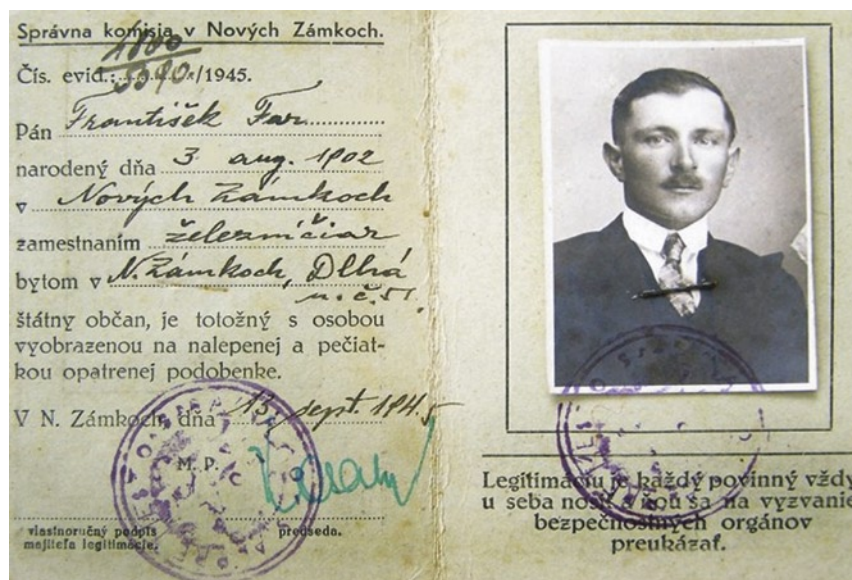 Správna komisia v Nových Zámkoch.
Čís. evid.: /1945.
Pán František Far
narodený dňa 3. aug. 1902
v Nových Zámkoch
zamestnaním železničiar
bytom v N. Zámkoch, Dlhá
u. č. 51.
štátny občan, je totožný s osobou
vyobrazenou na nalepenej a pečiat-
kou opatrenej podobenke.
V N. Zámkoch dňa 13. sept. 1945
M. P.
vlastnoručný podpis
majiteľa legitimácie.
predseda.
Legitimáciu je každý povinný vždy
u seba nosiť a ňou sa na vyzvanie
bezpečnostných orgánov
preukázať.